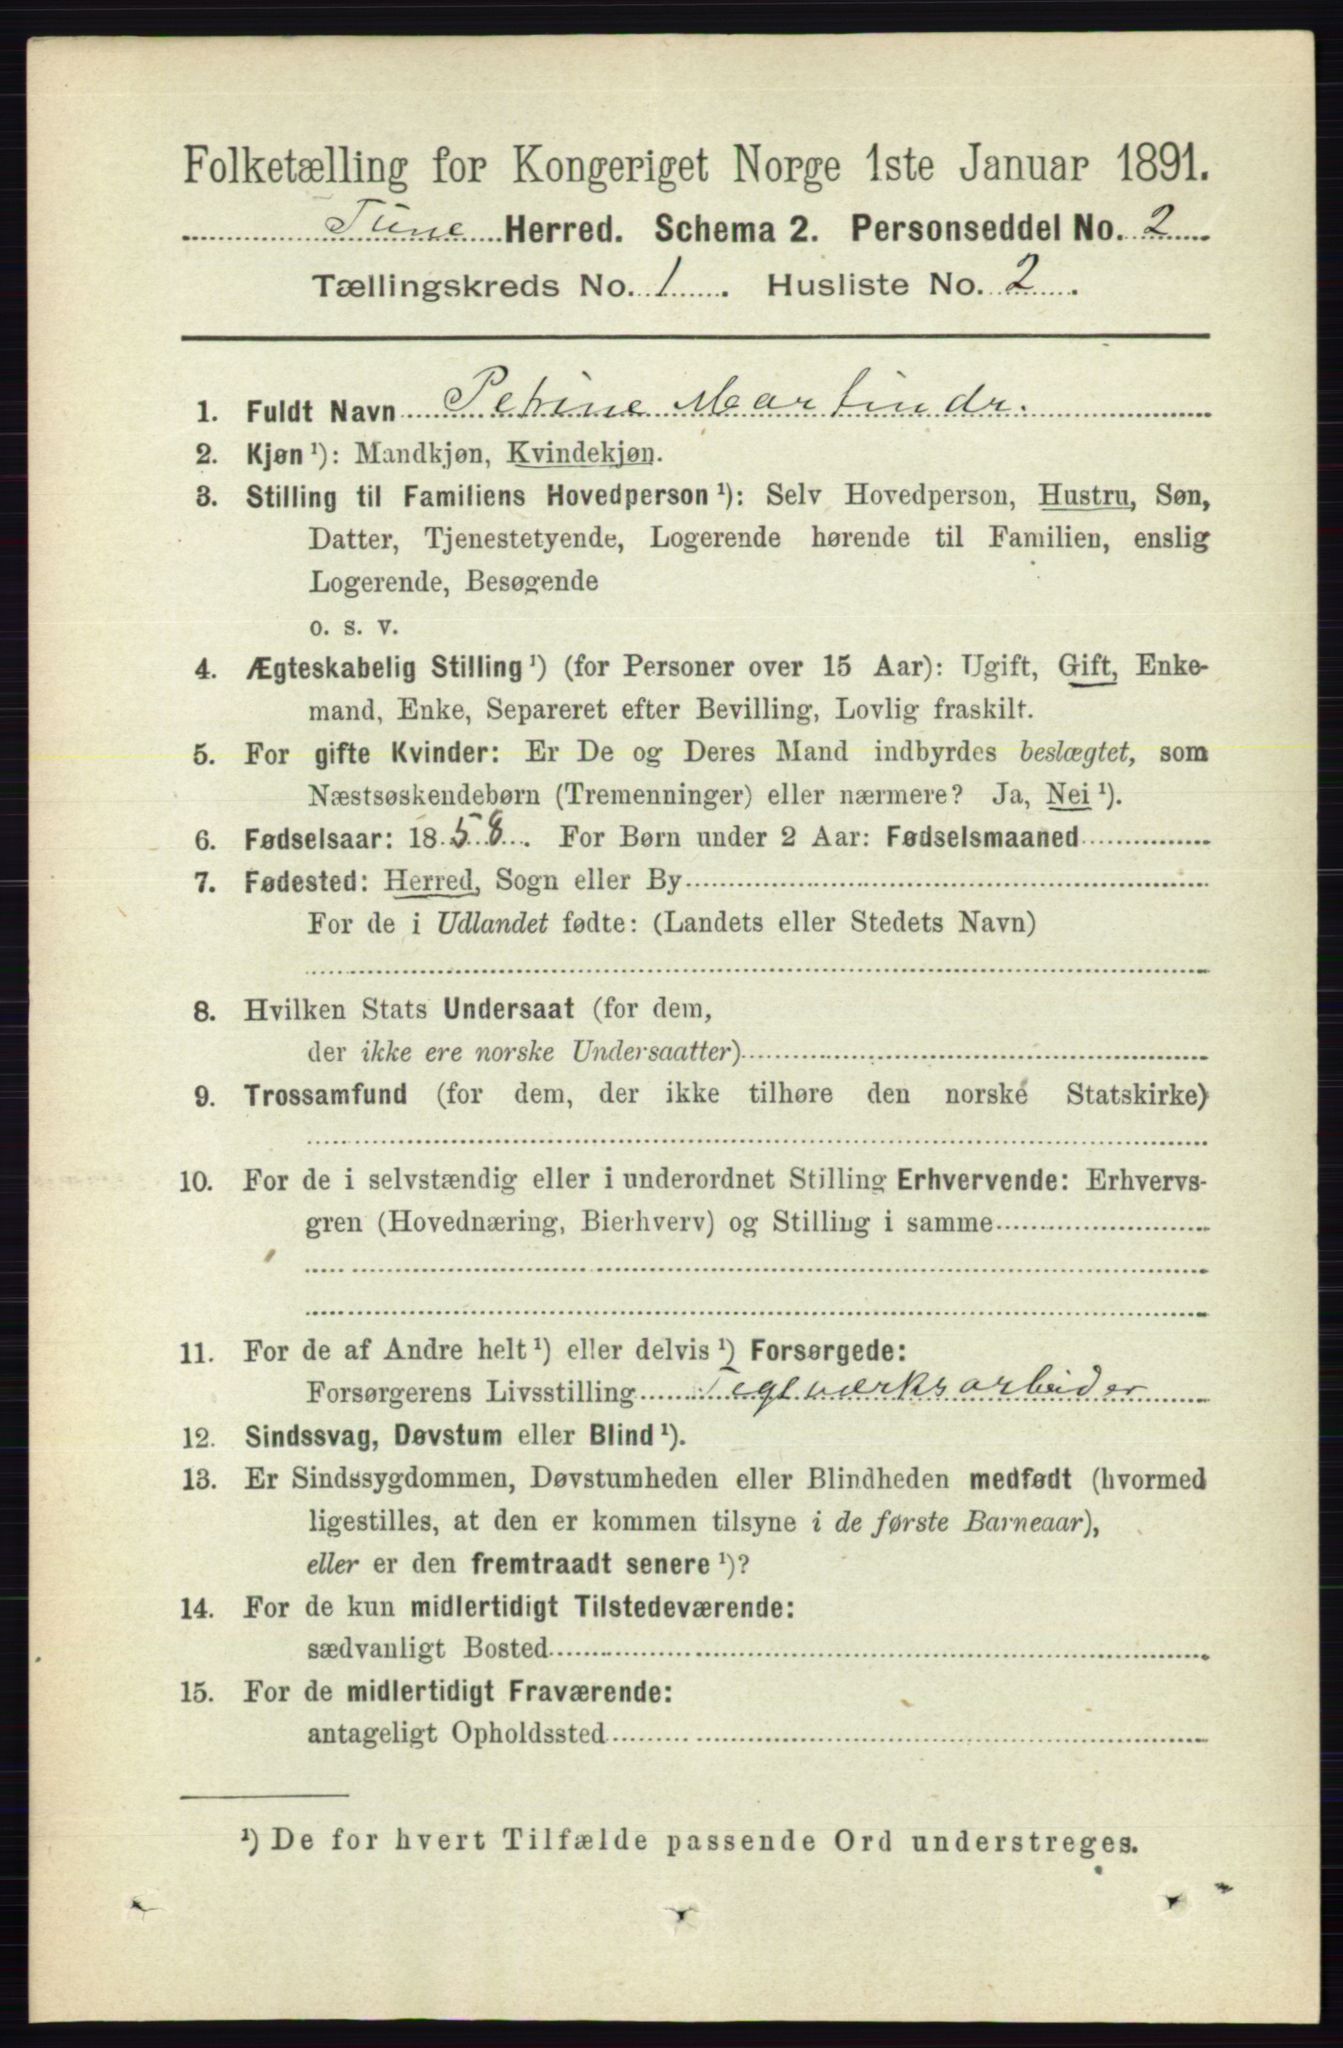 Folketælling for Kongeriget Norge 1ste Januar 1891.
Tune Herred. Schema 2. Personseddel No. 2
Tællingskreds No. 1. Husliste No. 2.
1. Fuldt Navn Petrine Martindr.
2. Kjøn ¹): Mandkjøn, Kvindekjøn.
3. Stilling til Familiens Hovedperson ¹): Selv Hovedperson, Hustru, Søn,
Datter, Tjenestetyende, Logerende hørende til Familien, enslig
Logerende, Besøgende
o. s. v.
4. Ægteskabelig Stilling ¹) (for Personer over 15 Aar): Ugift, Gift, Enke-
mand, Enke, Separeret efter Bevilling, Lovlig fraskilt.
5. For gifte Kvinder: Er De og Deres Mand indbyrdes beslægtet, som
Næstsøskendebørn (Tremenninger) eller nærmere? Ja, Nei ¹).
6. Fødselsaar: 1858. For Børn under 2 Aar: Fødselsmaaned
7. Fødested: Herred, Sogn eller By
For de i Udlandet fødte: (Landets eller Stedets Navn)
8. Hvilken Stats Undersaat (for dem,
der ikke ere norske Undersaatter)
9. Trossamfund (for dem, der ikke tilhøre den norske Statskirke)
10. For de i selvstændig eller i underordnet Stilling Erhvervende: Erhvervs-
gren (Hovednæring, Bierhverv) og Stilling i samme
11. For de af Andre helt ¹) eller delvis ¹) Forsørgede:
Forsørgerens Livsstilling Teglværksarbeider
12. Sindssvag, Døvstum eller Blind ¹).
13. Er Sindssygdommen, Døvstumheden eller Blindheden medfødt (hvormed
ligestilles, at den er kommen tilsyne i de første Barneaar),
eller er den fremtraadt senere ¹)?
14. For de kun midlertidigt Tilstedeværende:
sædvanligt Bosted
15. For de midlertidigt Fraværende:
antageligt Opholdssted
¹) De for hvert Tilfælde passende Ord understreges.